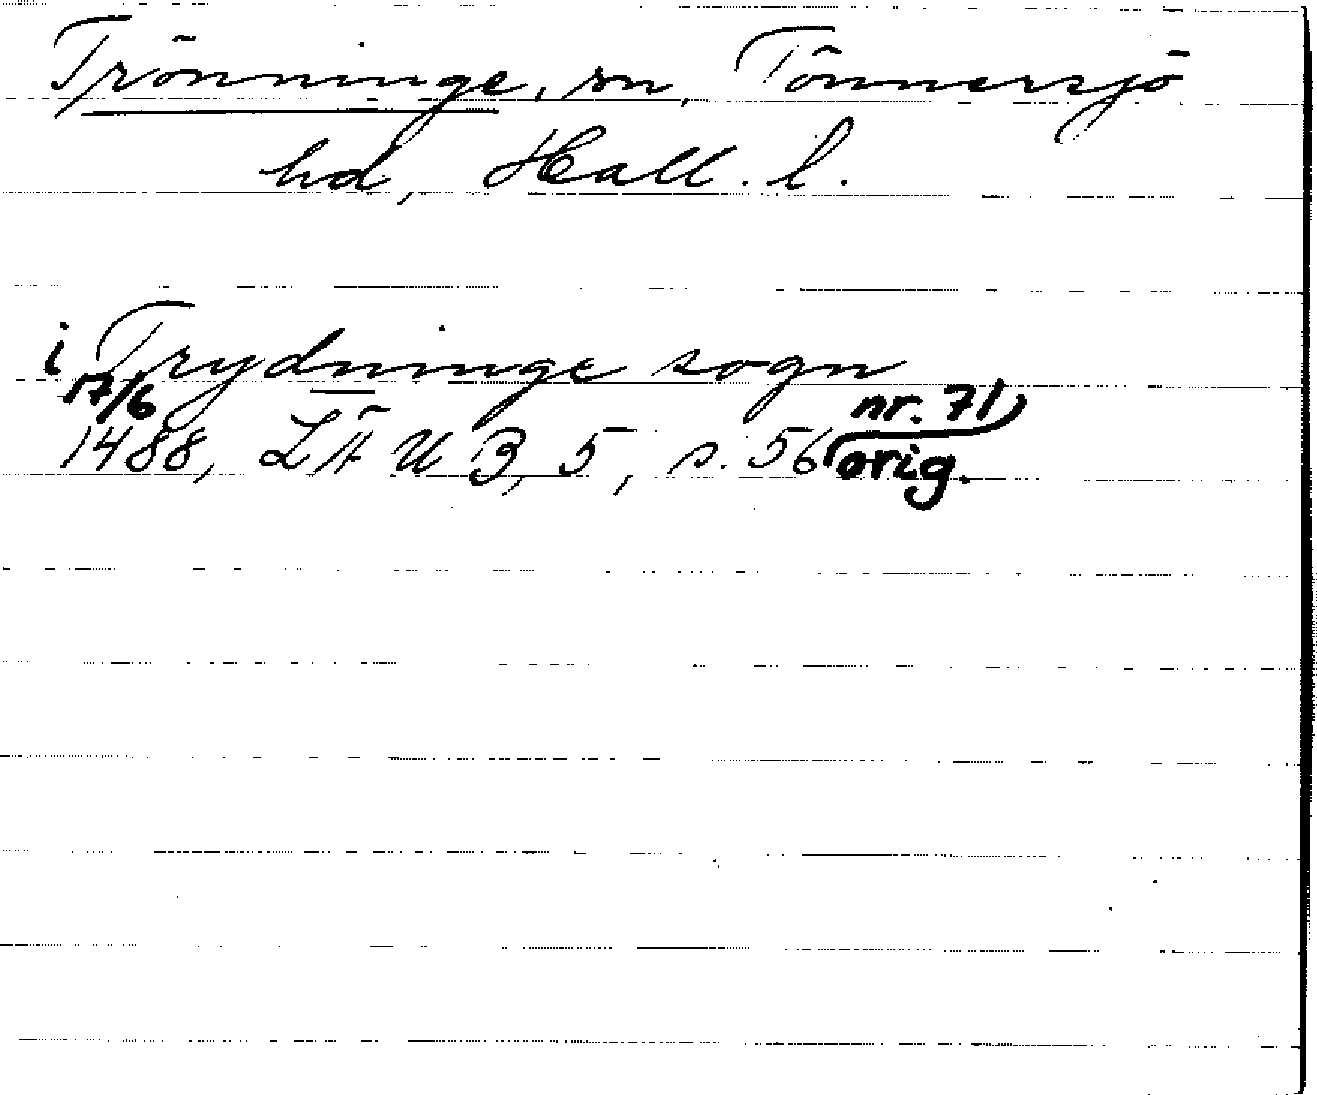 Trönninge, sn, Tönnersjö
hd, Hall. l.
i Trydninge sogn
17/6 nr. 71)
1488, LÄUB, 5, s. 56 (orig.